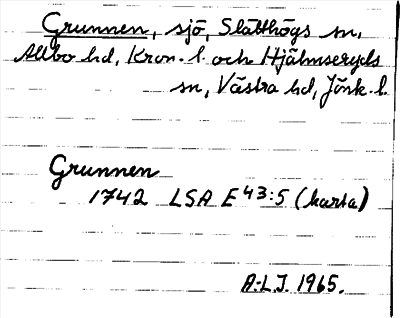 Grunnen, sjö, Slätthögs sn,
Allbo hd, Kron. l. och Hjälmseryds
sn, Västra hd, Jönk. l.
Grunnen
1742 LSA E 43:5 (karta)
A-L.J. 1965.